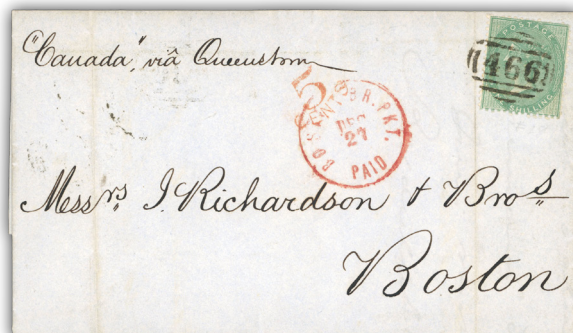 "Canada", viâ Queenstown
POSTAGE
466
SHILLING
5
CENTS
BOSTON BR. PKT.
DEC
27
PAID
Messrs J. Richardson & Bros
Boston